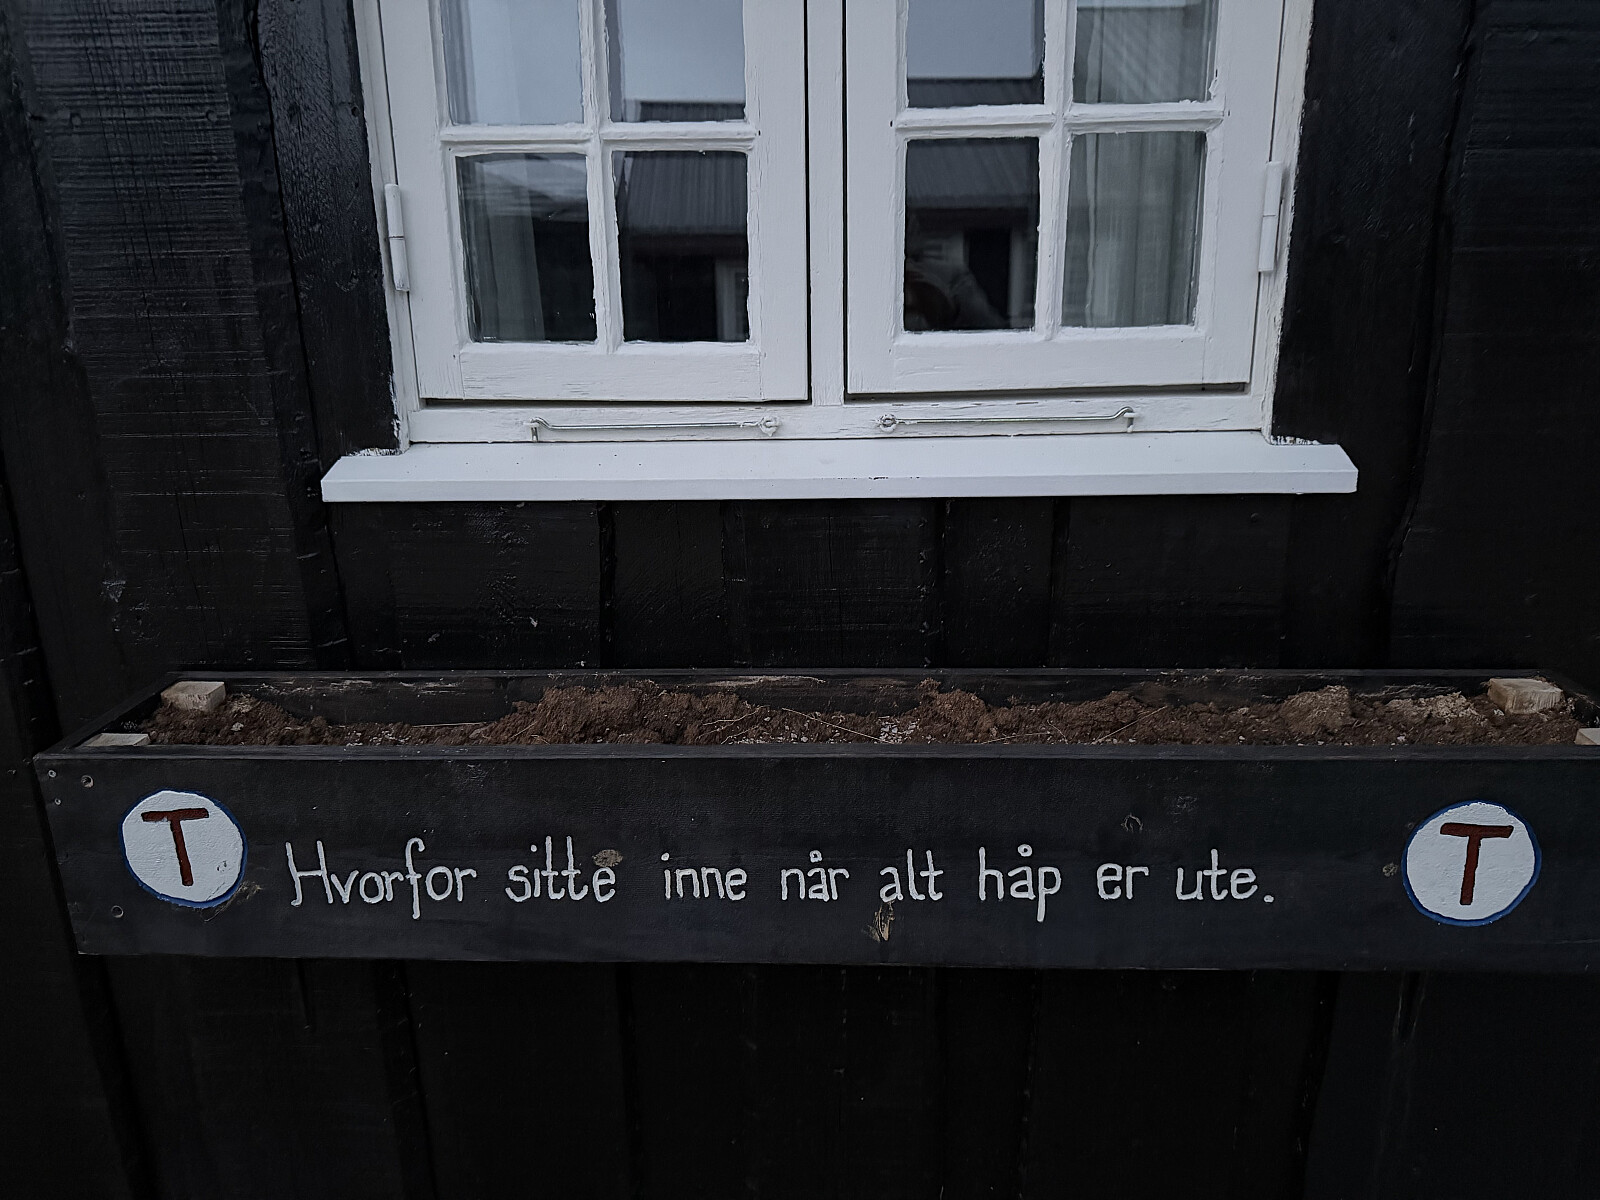 T Hvorfor sitte inne når alt håp er ute. T